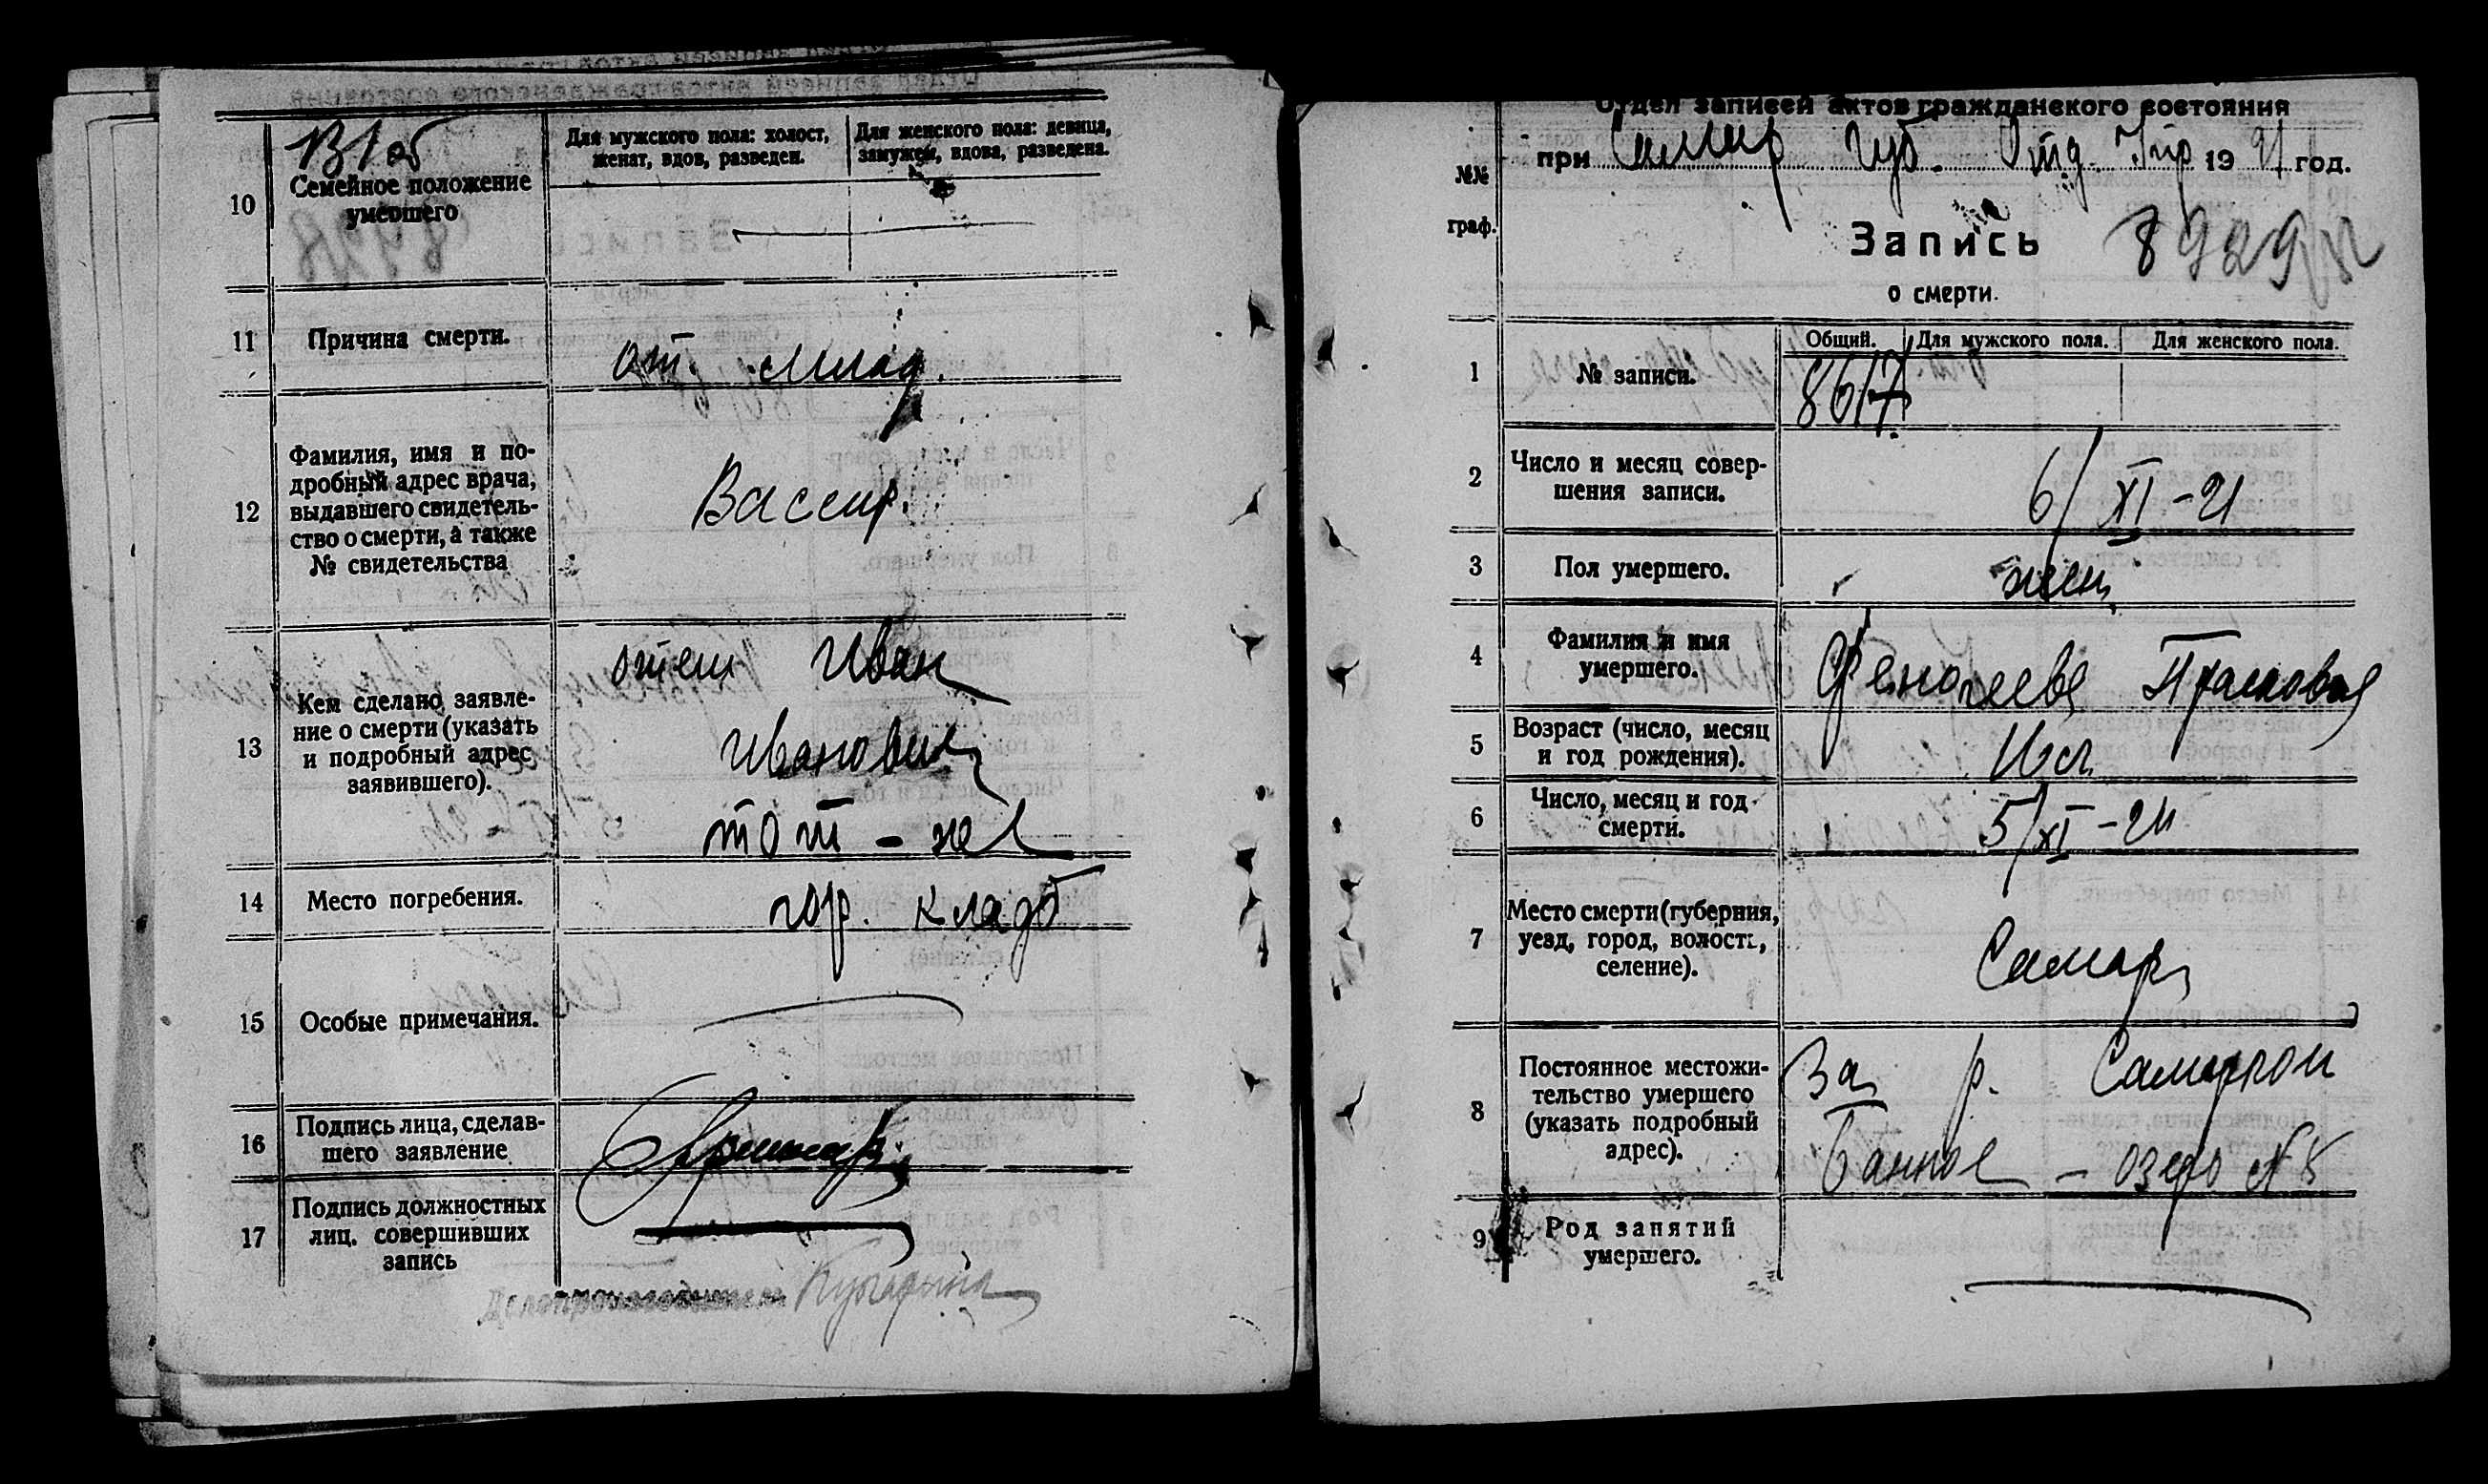 10
Семейное положение
умершего
Для мужского пола: холост,
женат, вдов, разведен.
Для женского пола: девица,
замужем, вдова, разведена.
11
Причина смерти.
от. млад.
12
Фамилия, имя и по-
дробный адрес врача,
выдавшего свидетель-
ство о смерти, а также
№ свидетельства
Вассер.
13
Кем сделано заявле-
ние о смерти (указать
и подробный адрес
заявившего).
отец Иван
Иванович
тот - же
14
Место погребения.
гор. кладб
15
Особые примечания.
16
Подпись лица, сделав-
шего заявление
17
Подпись должностных
лиц. совершивших
запись
Делопроизводитель
Отдел записей актов гражданского состояния
при Самар Губ. Отд. Упр 1921 год.
№№
граф.
Запись
8929
о смерти.
1
№ записи.
Общий.
Для мужского пола.
Для женского пола.
8617
2
Число и месяц совер-
шения записи.
6/XI-21
3
Пол умершего.
жен
4
Фамилия и имя
умершего.
Феногеева Прасковья
5
Возраст (число, месяц
и год рождения).
6
Число, месяц и год
смерти.
5/XI-21
7
Место смерти (губерния,
уезд, город, волость,
селение).
Самар
8
Постоянное местожи-
тельство умершего
(указать подробный
адрес).
За р. Самаркой
Банное - озеро № 8
9
Род занятий
умершего.